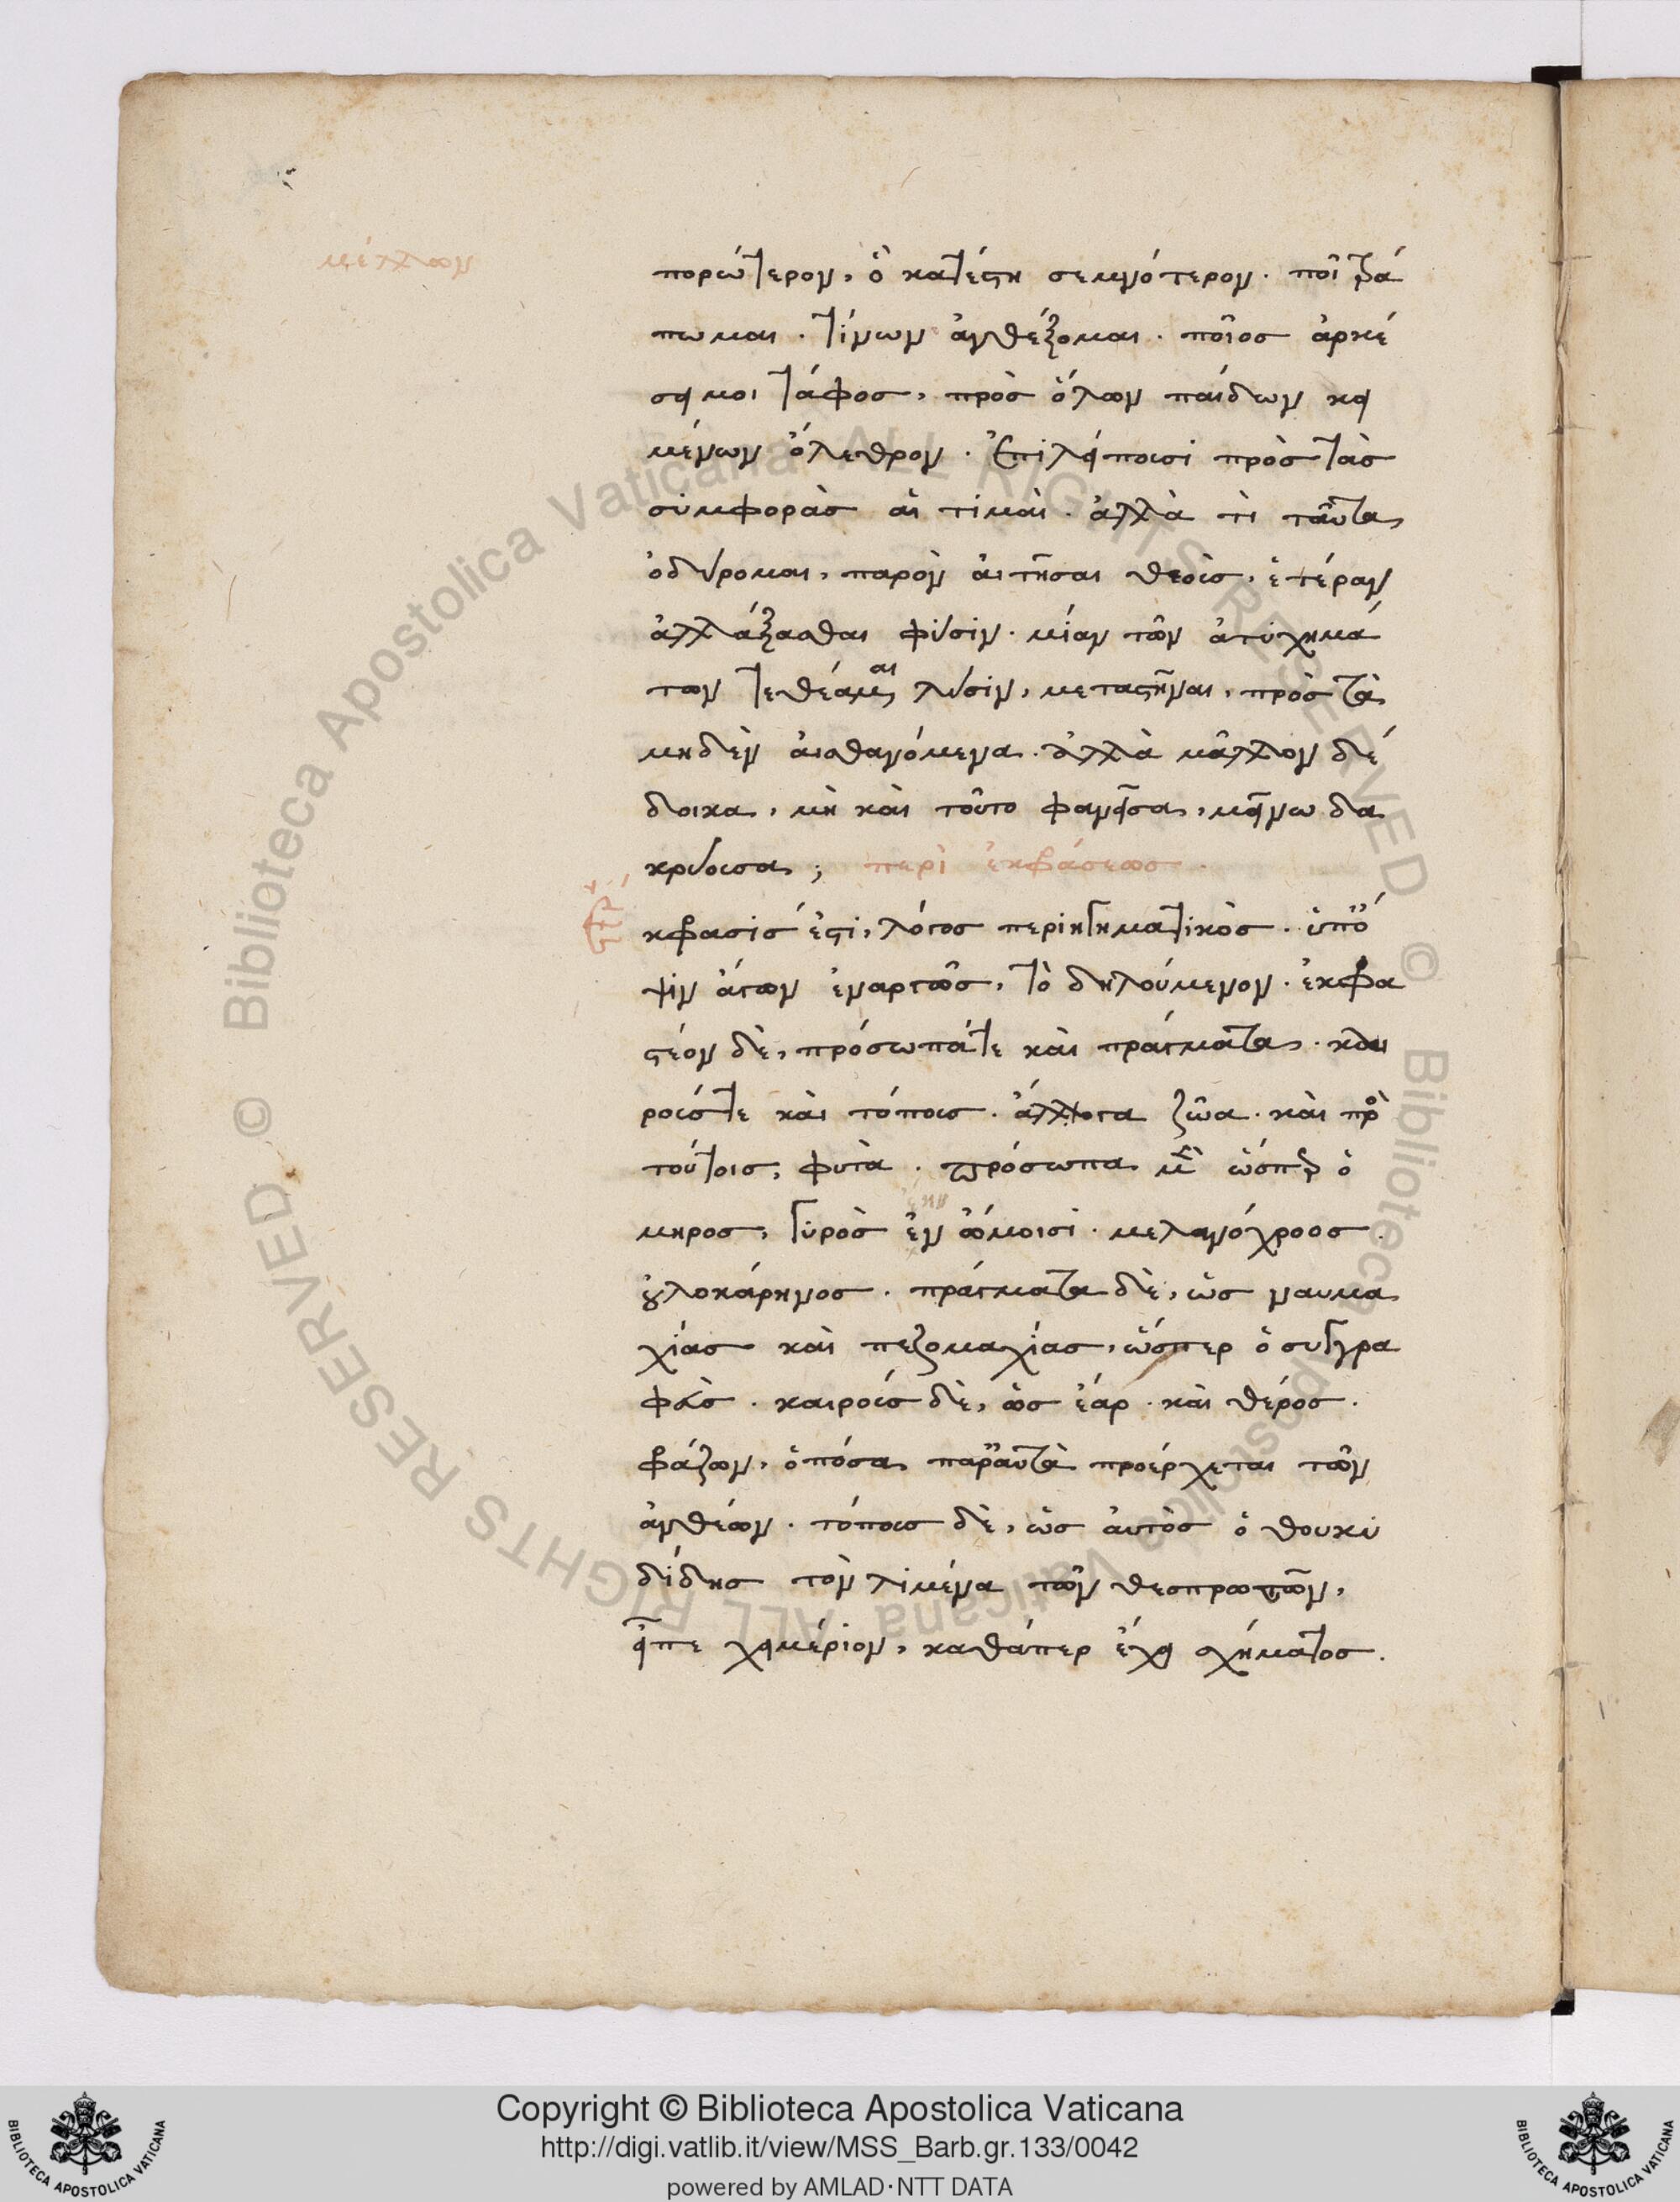 μέλλων
πορώτερον, ὃ κατέστη σεμνότερον. ποῖ τρά
πωμαι. τίνων ἀνθέξομαι. ποῖος ἀρκέ
σει μοι τάφος, πρὸς ὅλων παίδων κει
μένων ὄλεθρον. ἐπιλείπουσι πρὸς τὰς
συμφορὰς αἱ τιμαὶ. ἀλλὰ τί ταῦτα
ὀδύρομαι, παρὸν αἰτῆσαι θεοὺς, ἑτέραν
ἀλλάξασθαι φύσιν. μίαν τῶν ἀτυχημά
των τεθέαμαι λύσιν, μεταστῆναι, πρὸς τὰ
μηδὲν αἰσθανόμενα. ἀλλὰ μᾶλλον δέ
δοικα, μὴ καὶ τοῦτο φανεῖσα, μείνω δα
κρύουσα; περὶ ἐκφράσεως.
κφρασίς ἐστι, λόγος περιηγηματικὸς. ὑπ' ὄ
ψιν ἄγων ἐναργῶς, τὸ δηλούμενον. ἐκφρα
στέον δὲ, πρόσωπά τε καὶ πράγματα. και
ρούς τε καὶ τόπους. ἄλογα ζῶα. καὶ πρὸ
τούτοις, φυτὰ. πρόσωπα μὲν ὥσπερ ὅ
μηρος, γυρὸς ἐν ὤμοισι. μελανόχροος.
οὐλοκάρηνος. πράγματα δὲ, ὡς ναυμα
χίας καὶ πεζομαχίας, ὥσπερ ὁ συγγρα
φεὺς. καιροὺς δὲ, ὡς ἔαρ. καὶ θέρος.
φράζων, ὁπόσα παρ' αὐτὰ προέρχεται τῶν
ἀνθέων. τόπους δὲ, ὡς αὐτὸς ὁ θουκυ
δίδης τὸν λιμένα τῶν θεσπρωτῶν,
εἶπε χειμέριον, καθάπερ ἔχει σχήματος.
Copyright © Biblioteca Apostolica Vaticana
http://digi.vatlib.it/view/MSS_Barb.gr.133/0042
powered by AMLAD·NTT DATA
BIBLIOTECA APOSTOLICA VATICANA
BIBLIOTECA APOSTOLICA VATICANA
© Biblioteca Apostolica Vaticana ALL RIGHTS RESERVED
© Biblioteca Apostolica Vaticana ALL RIGHTS RESERVED